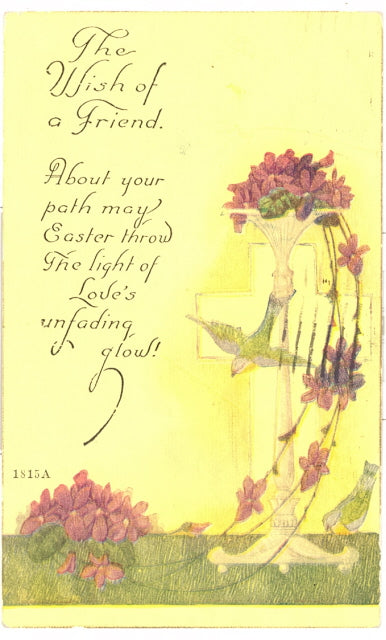 The
Wish of
a Friend.
About your
path may
Easter throw
The light of
Love's
unfading
glow!
1815A